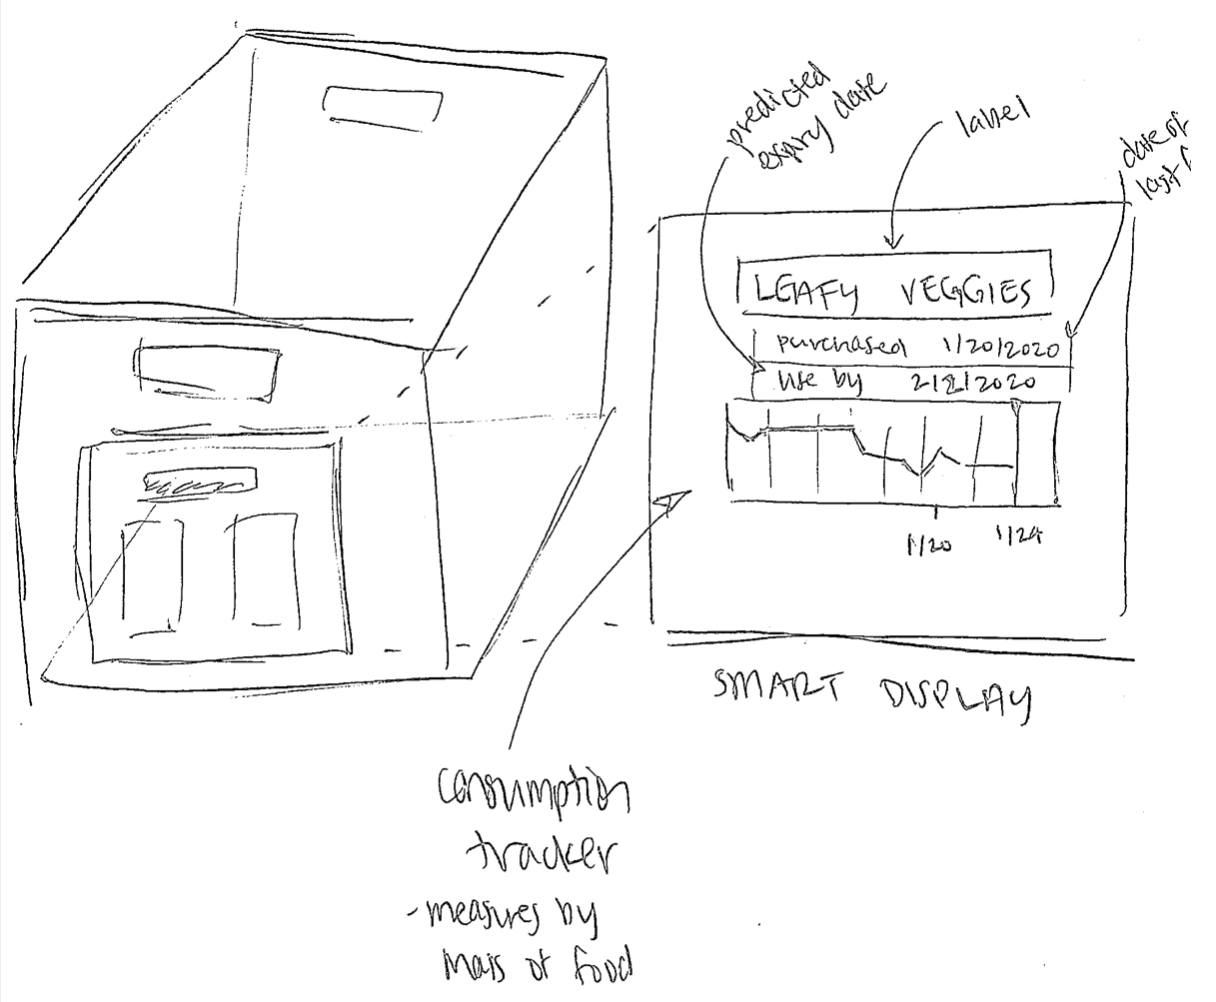 predicted
expiry date
label
date of
last
LEAFY VEGGIES
purchased 1/20/2020
use by 2/2/2020
1/20 1/24
SMART DISPLAY
consumption
tracker
- measures by
mass of food